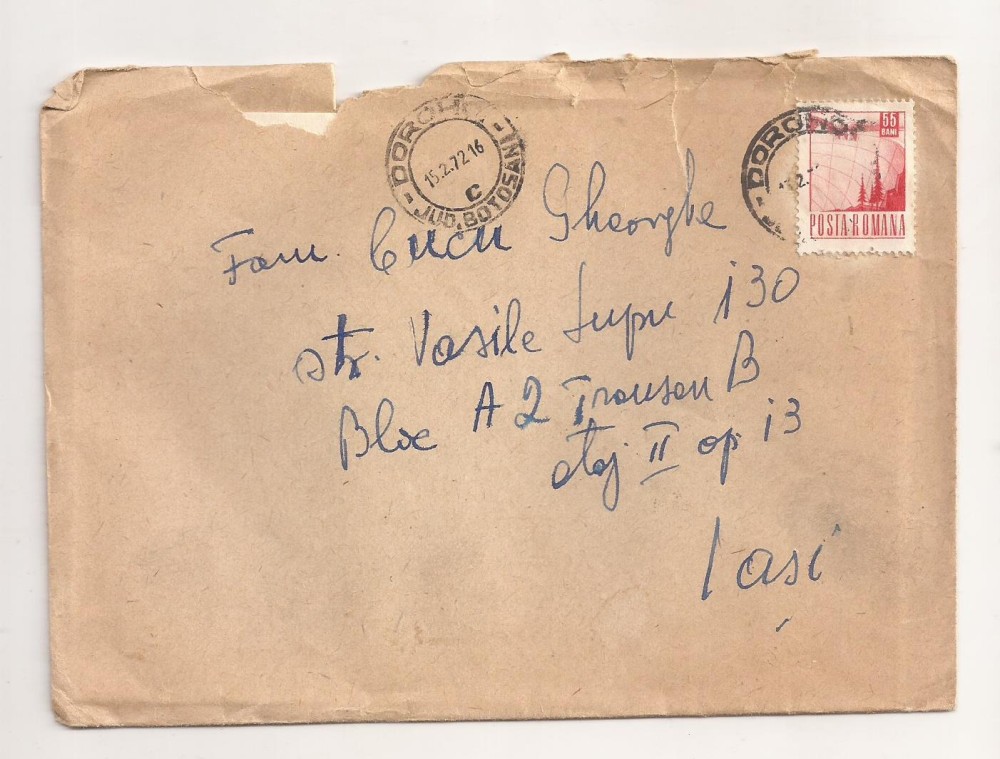 DOROHOI
15.2.72.16
C
JUD. BOTOȘANI
DOROHO
55
BANI
POSTA ROMANA
Fam. Cucu Gheorghe
str. Vasile Lupu 130
Bloc A2 Tronson B
etaj II ap 13
Iași